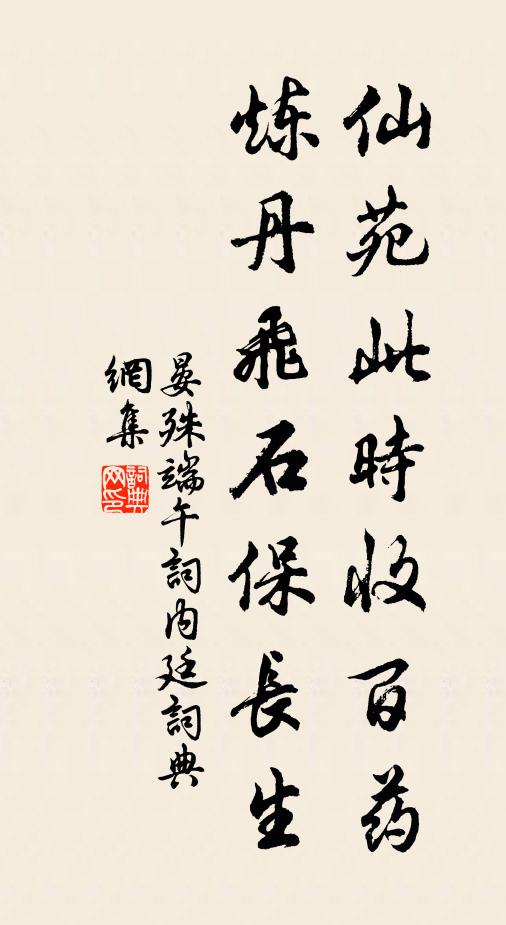 仙苑此時收百药
炼丹飛石保長生
晏殊端午詞内廷詞典
網集
詞典网印